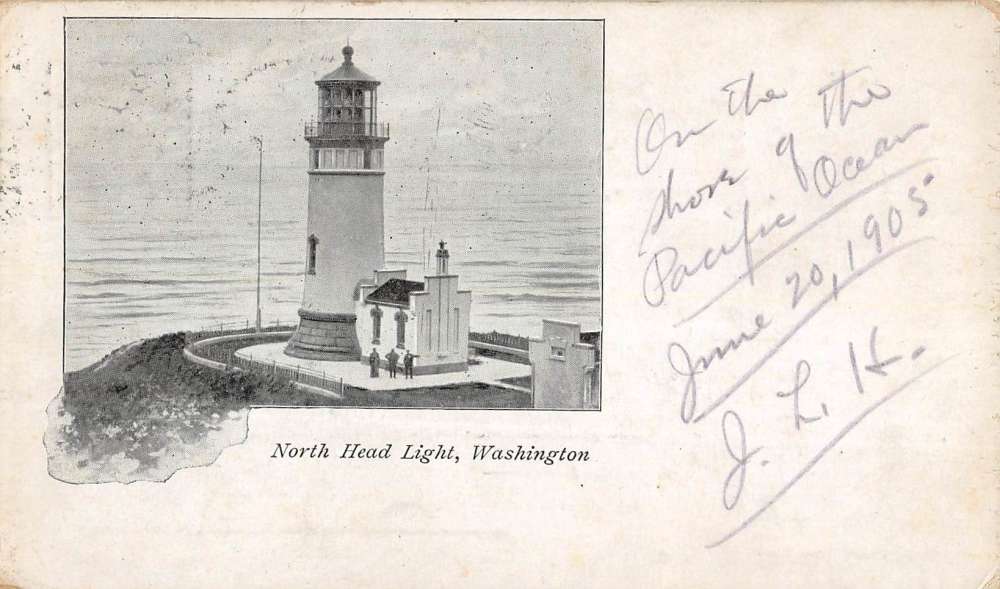 North Head Light, Washington
On the
shore of the
Pacific Ocean
June 20, 1905.
J. L. H.